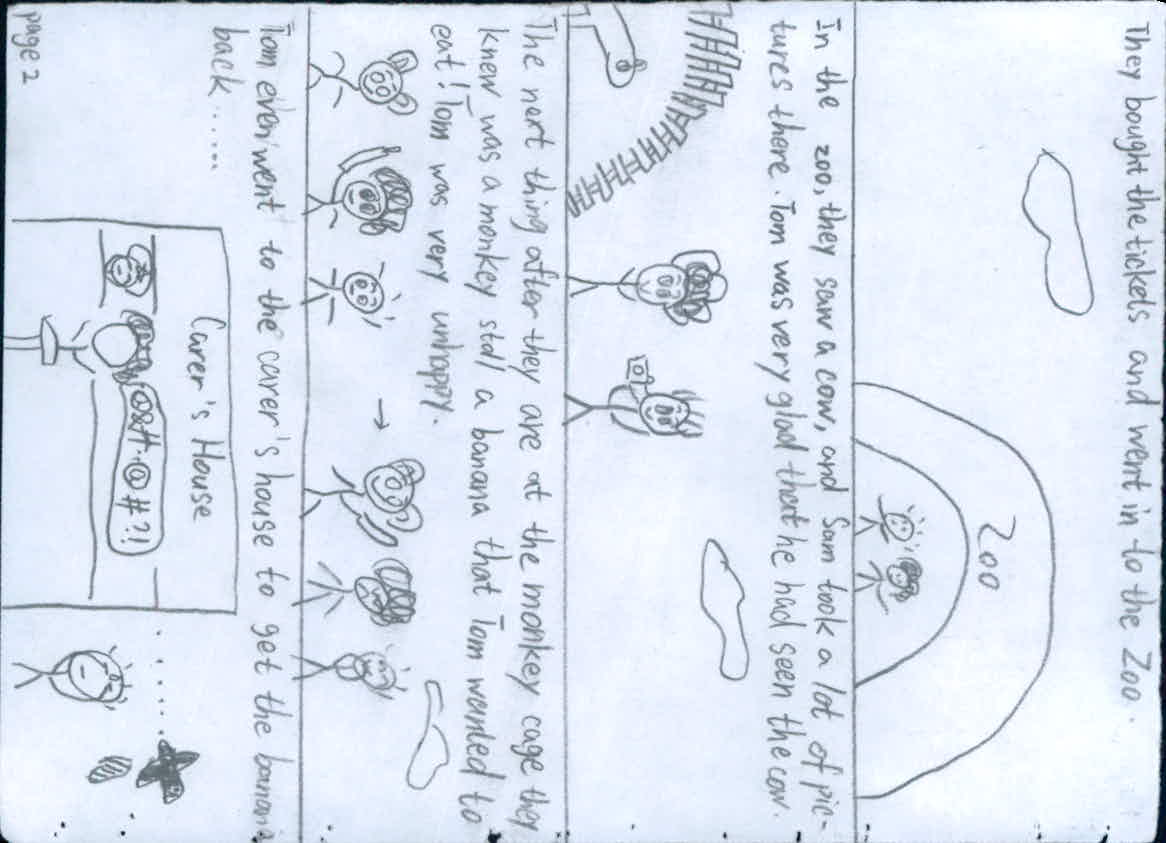 They bought the tickets and went in to the Zoo.
Zoo
In the zoo, they saw a cow, and Sam took a lot of pic-
tures there. Tom was very glad that he had seen the cow.
The next thing after they are at the monkey cage they
knew was a monkey stall a banana that Tom wanted to
eat! Tom was very unhappy.
Tom even went to the carer's house to get the banana
back......
Carer's House
@&#·@#?!
page 2